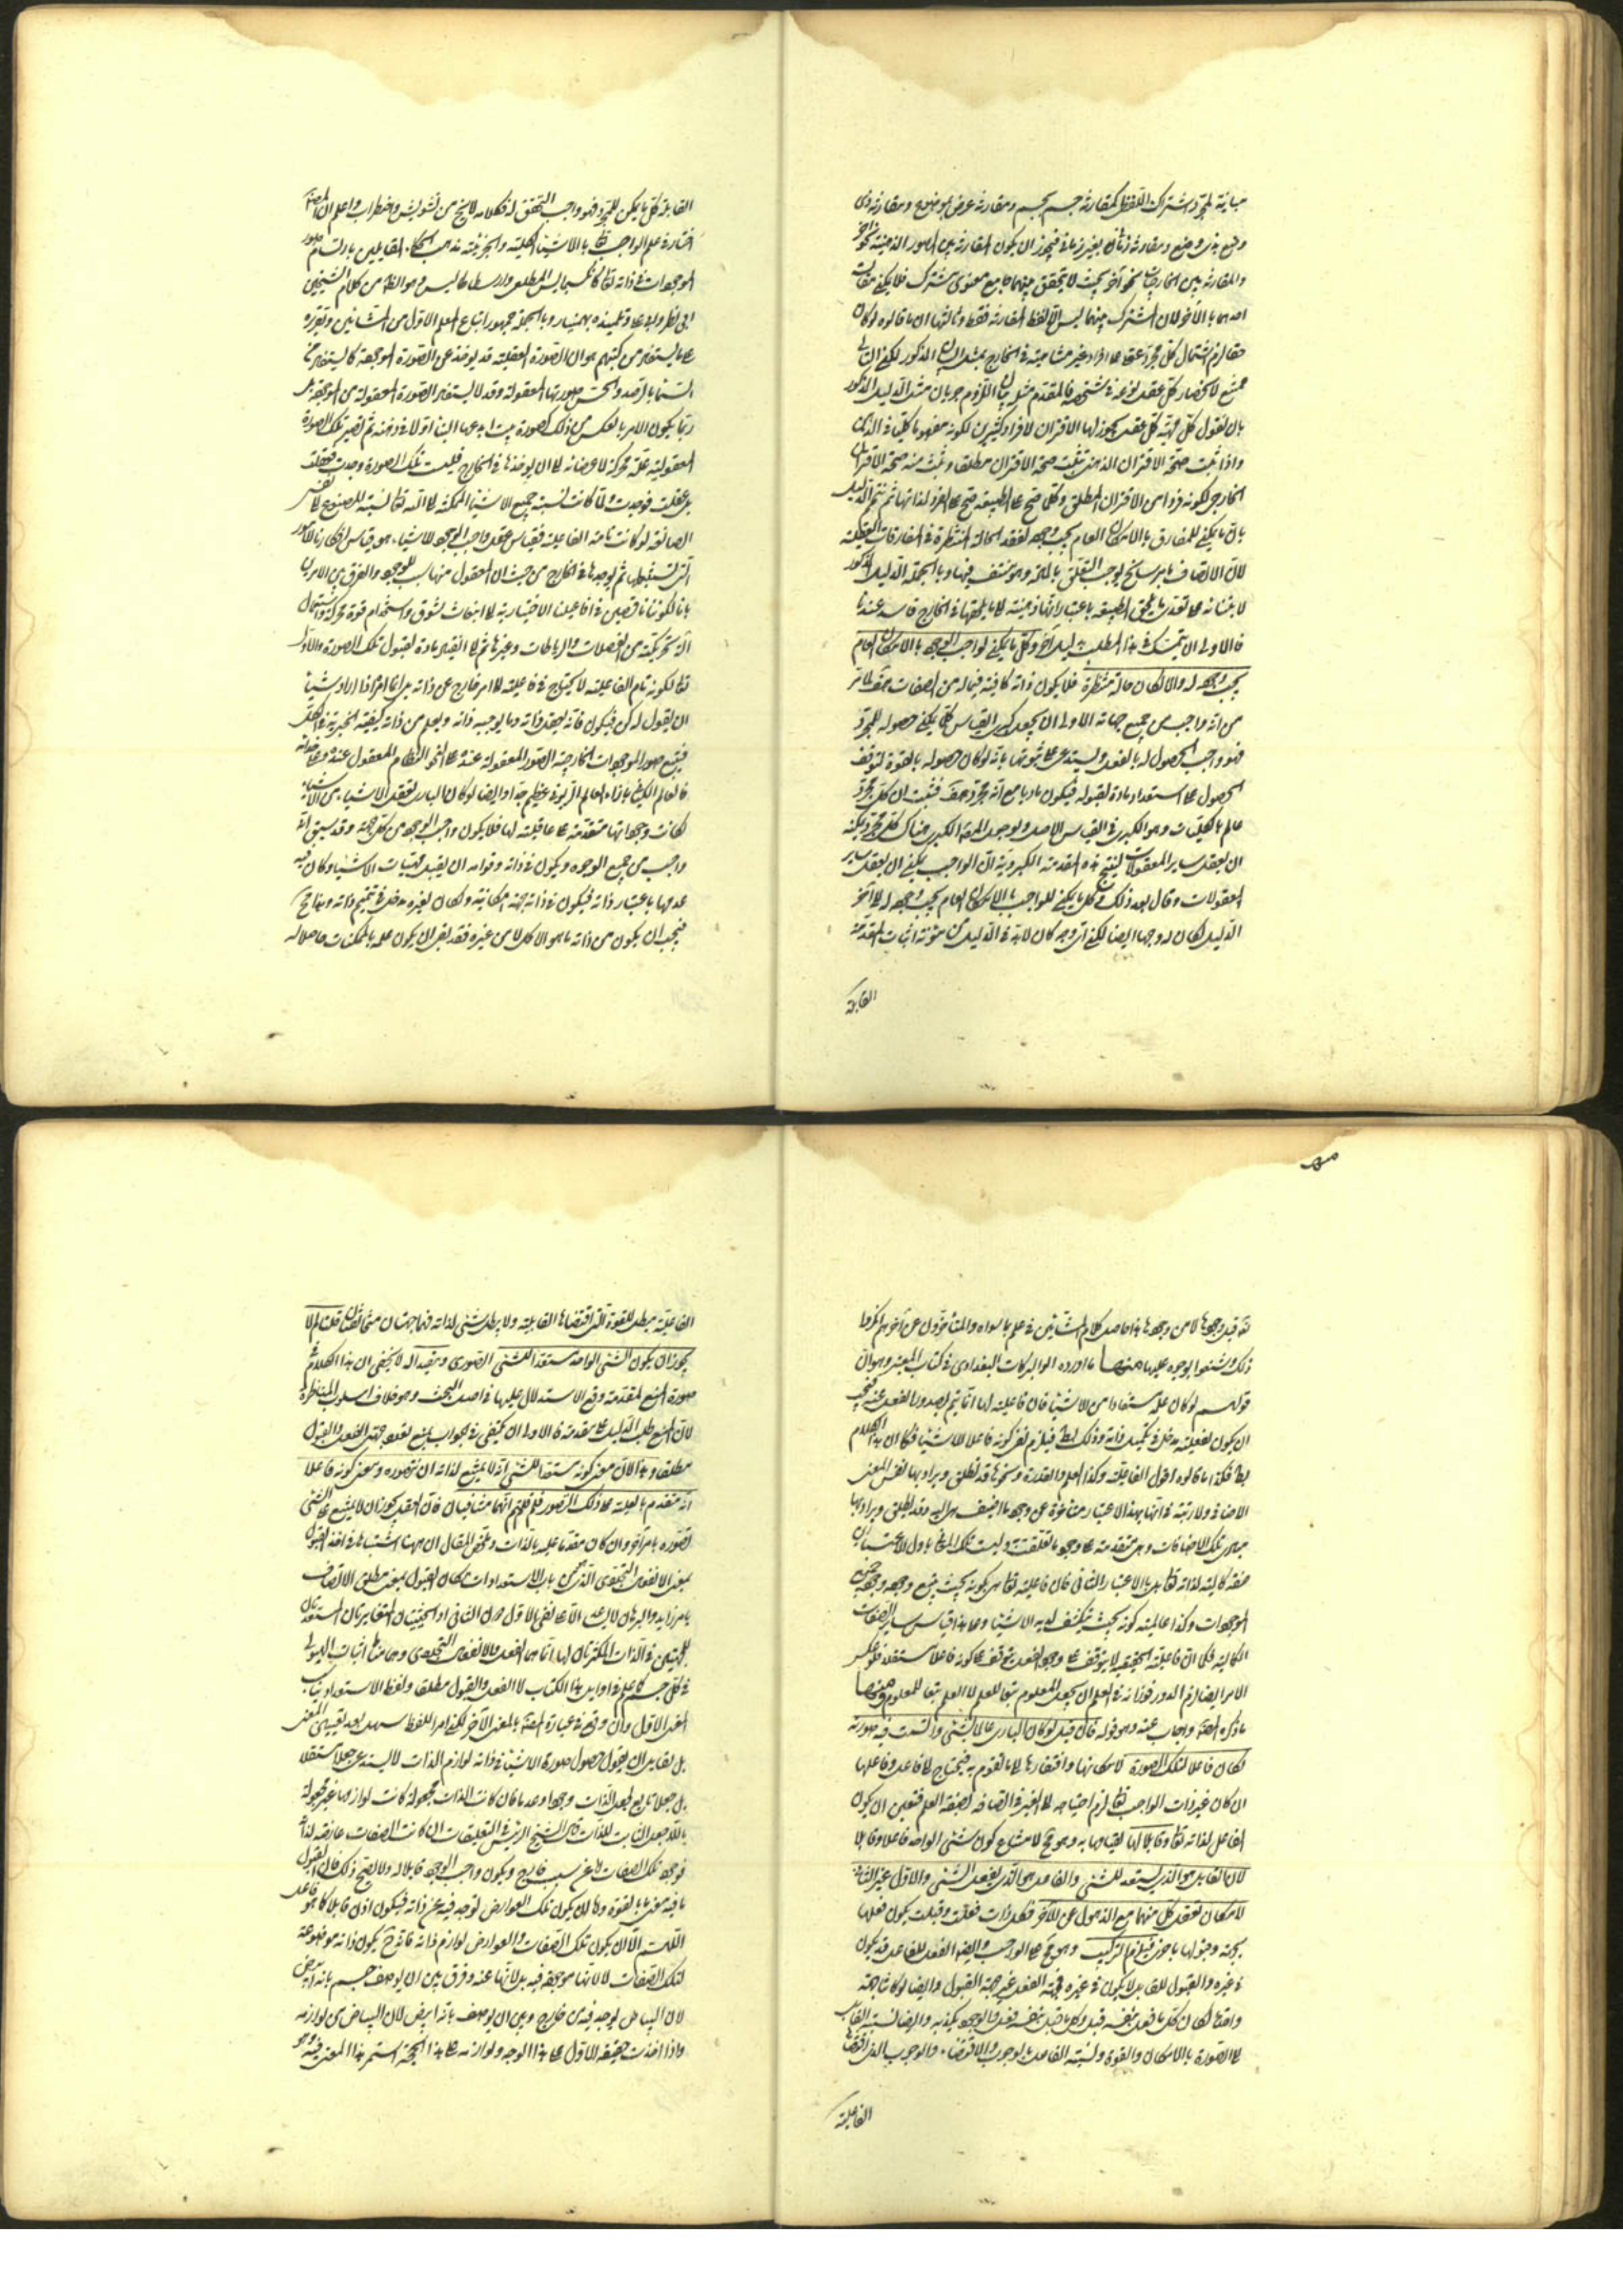 وضع بذى وضع ومقارنة زمانى بغير زمانى فيجوز ان يكون المقارنة بين الصور الذهنية نحوا
والمقارنة بين الخارجيات نحو آخر بحيث لا يتحقق بينهما جامع معنوى مشترك فلا يكفى
احدهما بالآخر لان المشترك بينهما ليس الا لفظ المقارنة فقط وثالثها ان ما قالوه لو كان
حقا لزم اشتمال كل مجرد عقلى على افراد غير متناهية فى الخارج بمثل البيان المذكور لكن التالى
ممتنع لانحصار كل عقل نوعه فى شخصه فالمقدم مثله بيان اللزوم جريان مثل الدليل المذكور
بان نقول كل مهية كل عقل يجوز لها الاقتران لافراد كثيرين لكونه مفهوما كليا فى الذهن
واذا ثبت صحة الاقتران الذهنى ثبتت صحة الاقتران مطلقا وثبت منه صحة الاقتران
الخارجى لكونه فردا من الاقتران المطلق وكلما صح على الطبيعة صح على الفرد لذاتها ثم نتمم الدليل
بان ما يمكن للمفارق بالامكان العام يجب وجوده لفقد الحالة المنتظرة فى المفارقات العقلية
لان الاتصاف بامر سانح يوجب التعلق بالمادة وهو منتف فيها وبالجملة الدليل المذكور
لابتنائه على تعدى ما يلحق الطبيعة باعتبار انها ذهنية الى ما يلحقها فى الخارج فاسد عندنا
فالاولى ان يتمسك فى هذا المطلب بدليل آخر وكل ما يمكن لواجب الوجود بالامكان العام
يجب وجوده له والا لكان حالة منتظرة فلا يكون ذاته كافية فيما له من الصفات هف لما مر
من انه واجب من جميع جهاته الاولى ان يجعل كبرى القياس كلما يمكن حصوله للمجرد
فهو واجب الحصول له بالفعل ويستدعى على ثبوتها بانه لو كان حصوله بالقوة لتوقف
الحصول على استعداد مادة لقبوله فيكون ماديا مع انه مجرد هف فثبت ان كل مجرد
عالم بالكليات وهو الكبرى فى القياس الاصل
ان يعقل ساير المعقولات لينتج هذه المقدمة الكبروية ان الواجب يمكن ان يعقل ساير
المعقولات وقال بعد ذلك وكل ما يمكن للواجب بالامكان العام يجب وجوده له
الدليل لكان له وجها ايضا
القابلة
القابلة كل ما يمكن للمجرد فهو واجب التحقق له فكلامه لا يخ من تشويش واضطراب واعلم ان المصنف
اختار فى علم الواجب تعالى بالاشياء الكلية والجزئية مذهب الحكماء القايلين بارتسام صور
الموجودات فى ذاته تعالى
ابى نصر وابى على وتلميذه بهمنيار وبالجملة جمهور اتباع المعلم الاول من المشائين وتقريره
على ما يستفاد من كتبهم هو ان الصورة العقلية قد يوخذ عن الصورة الموجودة كما يستفاد من
السماء بالرصد والحس صورتها المعقولة وقد لا يستفاد الصورة المعقولة من الموجودة بل
ربما يكون الامر بالعكس من ذلك كصورة بيت ابدعها البناء اولا فى ذهنه ثم تصير تلك الصورة
المعقولية علة محركة لاعضائه الى ان يوجدها فى الخارج فليست تلك الصورة وجدت فعقلت
بل عقلت فوجدت ولما كانت نسبة جميع الاشياء الممكنة الى الله تعالى نسبة المصنوع الى نفس
الصانعة لو كانت تامة الفاعلية فقياس عقل واجب الوجود للاشياء هو قياس افكارنا للامور
التى نستنبطها ثم نوجدها فى الخارج من حيث ان المعقول منها سبب للموجود والفرق بين الامرين
باننا لكوننا ناقصين فى افاعيلنا الاختيارية الى انبعاث شوق واستخدام قوة محركة واستعمال
آلة تحريكية من العضلات والرباطات وغيرها ثم الى انقياد مادة لقبول تلك الصورة والاول
تعالى لكونه تام الفاعلية لا يحتاج فى فاعليته الى امر خارج عن ذاته بل انما امره اذا اراد شيئا
ان يقول له كن فيكون فانه يعقل ذاته وما يوجبه ذاته ويعلم من ذاته كيفية الخيرية فى الكل
فيتبع صور الموجودات الخارجية الصور المعقولة عنده على نحو النظام المعقول عنده
فالعالم الكيانى بازاء العالم الربوبى عظيم جدا وايضا لو كان البارى يعقل الاشياء من الاشياء
لكانت وجوداتها متقدمة على عاقليته لها فلا يكون واجب الوجود من كل جهة وقد سبق انه
واجب من جميع الوجوه ويكون فى ذاته وقوامه ان يقبل مهيات الاشياء وكان فيه
عدمها باعتبار ذاته فيكون فى ذاته جهة امكانية ولكان لغيره مدخل فى تتميم ذاته
فيجب ان يكون من ذاته ما هو الاكمل لا من غيره فقد بقى ان يكون علمه بالممكنات حاصلا له
تعالى قبل وجودها لا من وجودها هذا حاصل كلام المشائين فى علمه بما سواه والمتأخرون عن آخرهم انكروا
ذلك وشنعوا بوجوه عليها منها ما اورده ابو البركات البغدادى فى كتاب المعتبر وهو ان
قولهم لو كان علمه مستفادا من الاشياء
ان يكون لفعله مدخل فى تكميل ذاته وذلك بط فيلزم نفى كونه فاعلا للاشياء فكما ان هذا الكلام
بط فكذا ما قالوه اقول الفاعلية وكذا العلم والقدرة ونحوها قد يطلق ويراد بها نفس المعنى
الاضافى ولا ريب فى انها بهذا الاعتبار متأخرة عن وجود ما اضيف اليه وقد يطلق ويراد بها
مبادى تلك الاضافات وهى متقدمة على وجود ما تعلقت به وليست تلك المعانى باول الاعتبارين
صفة كمالية لذاته تعالى بل بالاعتبار الثانى فان فاعليته تعالى هى كونه بحيث يتبع وجوده وجود جميع
الموجودات وكذا عالميته كونه بحيث ينكشف لديه الاشياء وعلى هذا قياس ساير الصفات
الكمالية فكما ان فاعليته الحقيقية لا يتوقف على وجود الفعل بل يتوقف على كونه فاعلا مستقلا فلو عكس
الامر ايضا لزم الدور فوزانه فى العلم ان يجعل المعلوم تبعا للعلم لا العلم تبعا للمعلوم ومنها
ما ذكره المصنف واجاب عنه وهو قوله فان قيل لو كان البارى عالما بالشئ وارتسمت فيه صورته
لكان فاعلا لتلك الصورة لامكانها وافتقارها الى ما تقوم به فيحتاج الى فاعل وفاعلها
ان كان غير ذات الواجب تعالى لزم احتياجه الى الغير فى اتصافه بصفة العلم فتعين ان يكون
الفاعل لذاته تعالى وقابلا لها لقيامها به وهو مح لامتناع كون الشئ الواحد فاعلا وقابلا
لان القابل هو الذى يستعد للشئ والفاعل هو الذى يفعل الشئ والاول غير الثانى
لامكان تعقل كل منهما مع الذهول عن الآخر فكل ذات فعلت وقبلت يكون فعلها
بجهة وقبولها باخرى فيلزم التركيب وهو مح على الواجب وايضا الفعل للفاعل قد يكون
فى غيره والقبول للقابل لا يكون فى غيره فجهة الفعل غير جهة القبول وايضا لو كانتا جهة
واحدة لكان كل ما فعل بنفسه قبل وكل ما قبل بنفسه فعل والوجود يكذبه وايضا نسبة القابل
الى الصورة بالامكان والقوة ونسبة الفاعل بالوجوب والاقتضاء والوجوب الذى اقتضا
الفاعلية
الفاعلية يبطل القوة التى اقتضاها القابلية ولا يبطل شئ لذاته فهما جهتان متخالفتان قلنا لم لا
يجوز ان يكون الشئ الواحد مستعدا للشئ الصورى ومفيدا له لا يخفى ان هذا الكلام فى
صورة المنع لمقدمة وقع الاستدلال عليها فى اصل البحث وهو خلاف اسلوب المناظرة
لان المنع طلب الدليل على مقدمة فالاولى ان يكتفى فى الجواب بمنع تعدد جهتى الفعل والقبول
مطلقا وهذا لان معنى كونه مستعدا للشئ انه لا يمتنع لذاته ان يتصوره ومعنى كونه فاعلا
انه متقدم بالعلية على ذلك التصور فلم قلتم انهما متنافيان فان العقل يجوز ان لا يمتنع على الشئ
تصوره بامر آخر وان كان متقدما عليه بالذات وملخص المقال ان ههنا اشتباها فى اخذ القبول
بمعنى الانفعال التجددى الذى هو من باب الاستعدادات مكان القبول بمعنى مطلق الاتصاف
بامر زايد والبرهان لا يساعد الا على نفى الاول دون الثانى اذ الحيثيتان المتغايرتان المستدعيتان
للجهتين فى الذات المكثرتان لها انما هما الفعل والانفعال التجددى وهما مناط اثبات الهيولى
فى كل جسم كما علم فى اوايل هذا الكتاب لا الفعل والقبول مطلقا ولفظ الاستعداد يناسب
المعنى الاول وان وقع فى عبارة المصنف بالمعنى الآخر لكن امر اللفظ سهل بعد تعيين المعنى
بل لقايل ان يقول حصول صورة الاشياء فى ذاته لوازم الذات لا يستدعى جعلا مستقلا
بل جعلها تابع لجعل الذات وجودا وعدما فان كانت الذات مجعولة كانت لوازمها غير مجعولة
بل للاجعل الثابت للذات قال الشيخ الرئيس فى التعليقات ان كانت الصفات عارضة لذاته
فوجود تلك الصفات اما عن سبب خارج ويكون واجب الوجود قابلا له ولا يصح ذلك فان القبول
ما فيه معنى ما بالقوة واما ان يكون تلك العوارض توجد فيه عن ذاته فيكون اذن قابلا كما هو فاعل
اللهم الا ان يكون تلك الصفات والعوارض لوازم ذاته فانه ح يكون ذاته موضوعة
لتلك الصفات لا لانها موجودة فيه بل لانها عنه وفرق بين ان يوصف جسم بانه ابيض
لان البياض يوجد فيه من خارج وبين ان يوصف بانه ابيض لان البياض من لوازمه
واذا اخذت حقيقة الاول على هذا الوجه ولوازمه على هذا الجهة استمر هذا المعنى فيه وهو